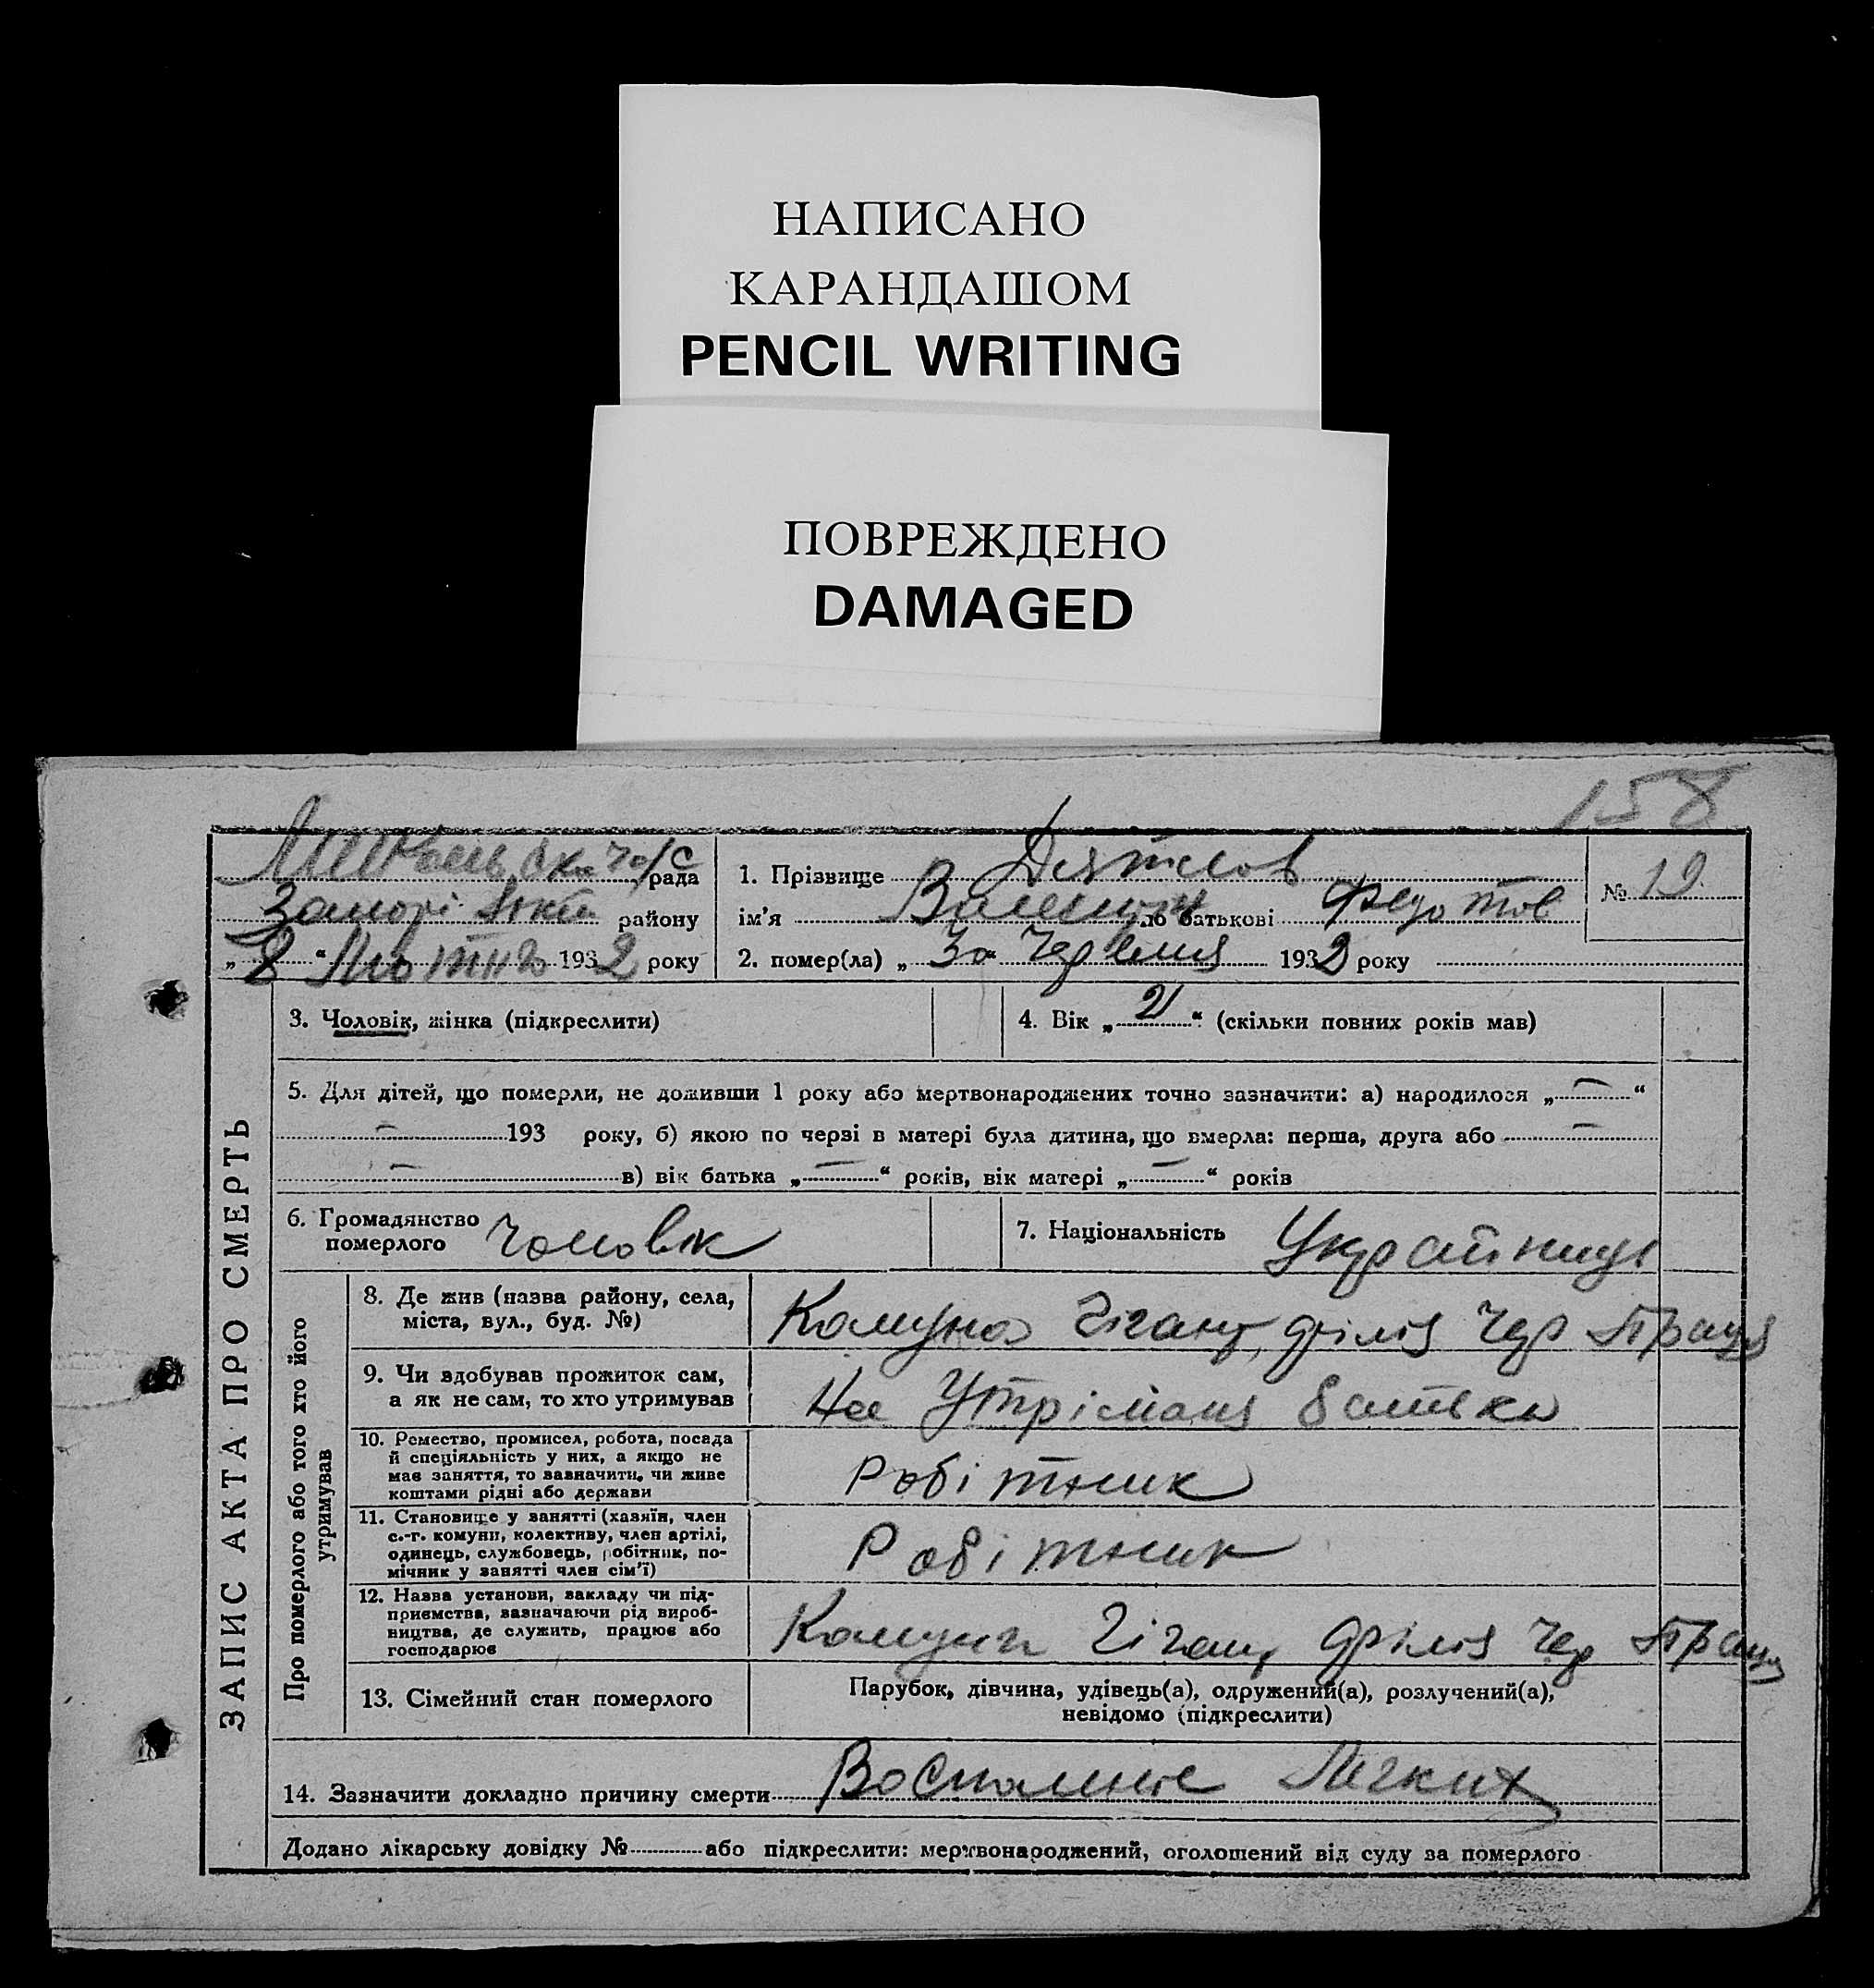 НАПИСАНО
КАРАНДАШОМ
PENCIL WRITING
ПОВРЕЖДЕНО
DAMAGED
158
рада
району
„ 8 “ Лютого 1932 року
1. Прізвище Дятлов
ім'я по батькові Федотов
№ 19
2. помер(ла) „ 1932 року
ЗАПИС АКТА ПРО СМЕРТЬ
3. Чоловік, жінка (підкреслити)
4. Вік „ “ (скільки повних років мав)
5. Для дітей, що померли, не доживши 1 року або мертвонароджених точно зазначити: а) народилося „ — “
— 193 року, б) якою по черзі в матері була дитина, що вмерла: перша, друга або —
— в) вік батька „ — “ років, вік матері „ — “ років
6. Громадянство
померлого Чоловік
7. Національність Українець
Про померлого або того хто його
утримував
8. Де жив (назва району, села,
міста, вул., буд. №)
Комуна Гігант, філія Чер Праця
9. Чи здобував прожиток сам,
а як не сам, то хто утримував
На Утрімані батька
10. Ремество, промисел, робота, посада
й спеціяльність у них, а якщо не
має заняття, то зазначити, чи живе
коштами рідні або держави
Робітник
11. Становище у занятті (хазяїн, член
с.-г. комуни, колективу, член артілі,
одинець, службовець, робітник, по-
мічник у занятті член сім'ї)
Робітник
12. Назва установи, закладу чи під-
приємства, зазначаючи рід вироб-
ництва, де служить, працює або
господарює
Гігант філія Чер Праця
13. Сімейний стан померлого
Парубок, дівчина, удівець(а), одружений(а), розлучений(а),
невідомо (підкреслити)
14. Зазначити докладно причину смерти Воспаленіе Легких
Додано лікарську довідку № або підкреслити: мертвонароджений, оголошений від суду за померлого